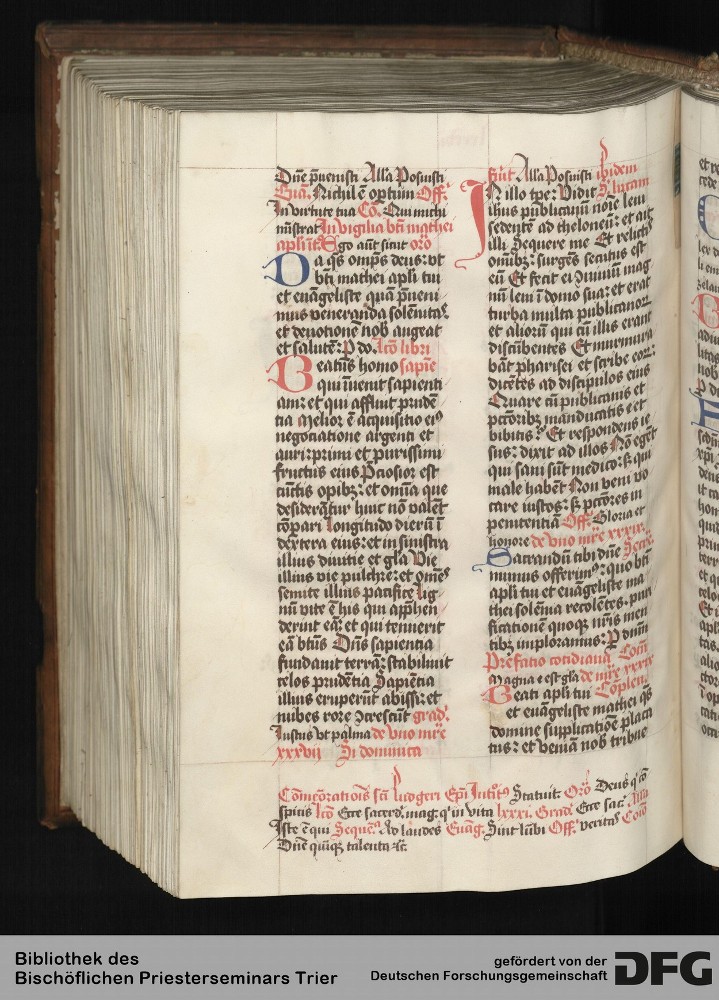 Dñe p̃uenisti Alla Posuisti
Gr̃a. Nichil ẽ optim̃ Off.
In virtute tua Co. Qui michi
ministrat In vigilia bti mathei
apli Ego aut̃ sicut oro
Da q̃s omp̃s deus: vt
bti mathei apli tui
et euãgeliste quã p̃ueni
mus veneranda solẽnitas
et deuotionẽ nob̃ augeat
et salutẽ: P do. lc̃o libri
Beatus homo sapiẽ
qui ĩuenit sapienti
am: et qui affluit prudẽ
tia Melior ẽ acquisitio eiꝰ
negociatione argenti et
auri: primi et purissimi
fructus eius P̃ciosior est
cũctis opibꝫ: et om̃ia que
desiderãtur huic nõ valẽt
cõpari Longitudo dierũ ĩ
dextera eius: et in sinistra
illius diuitie et gl̃a Vie
illius vie pulchre: et om̃es
semite illius pacifice Lig
nũ vite ẽ his qui app̃hen
derint eã: et qui tenuerit
eã bt̃us Dñs sapientia
fundauit terrã: stabiliuit
celos prudẽtia Sapiẽtia
illius eruperũt abissi: et
nubes rore ↄcrescũt grad.
Iustus vt palma de vno m̃re
xxxvij Si dominica
fũit Alla Posuisti ibidem
In illo tpe: Vidit S. lucam
ihus publicanũ noĩe leui
sedentẽ ad theloneũ: et ait
illi Sequere me Et relictꝭ
omibꝫ: surgẽs secutus est
eũ Et fecit ei ↄuiuiũ mag
nũ leui ĩ domo sua: et erat
turba multa publicanoꝝ
et alioꝝ qui cũ illis erant
discũbentes Et murmura
bãt pharisei et scribe eoꝝ:
dicẽtes ad discipulos eius
Quare cũ publicanis et
pctõribꝫ manducatis et
bibitis: Et respondens ie
sus: dixit ad illos Nõ egẽt
qui sani sũt medico: sꝫ qui
male habẽt Non veni vo
care iustos: sꝫ pctõres in
penitentiã Off. Gloria et
honore de vno m̃re xxxix.
Sacrandũ tibi dñe Secre.
munus offerimꝰ: quo bti
apli tui et euãgeliste ma
thei solẽnia recolẽtes. puri
ficationẽ quoqꝫ nr̃is men
tibꝫ imploramus: P dnm̃
Prefatio cotidiana Com̃
Magna ẽ est gl̃a de m̃re xxxix
Beati apli tui Cõplen.
et euãgeliste mathei q̃s
domine supplicatiõe placa
tus: et veniã nob̃ tribue
Cõmemorationis sc̃i Ludgeri Ep̃i Introitꝰ Statuit. Oro Deus q̃ cõ
spicis lc̃o Ecce sacerd. mag. q̃ in vita lxxxi. Grad. Ecce sac̃. Alla
Iste ẽ qui Seque. Ad laudes Euãg. Sint lũbi Off. veritas Com̃o
Dñe quĩqꝫ talenta ꝛc̃.
Bibliothek des
Bischöflichen Priesterseminars Trier
gefördert von der
Deutschen Forschungsgemeinschaft
DFG